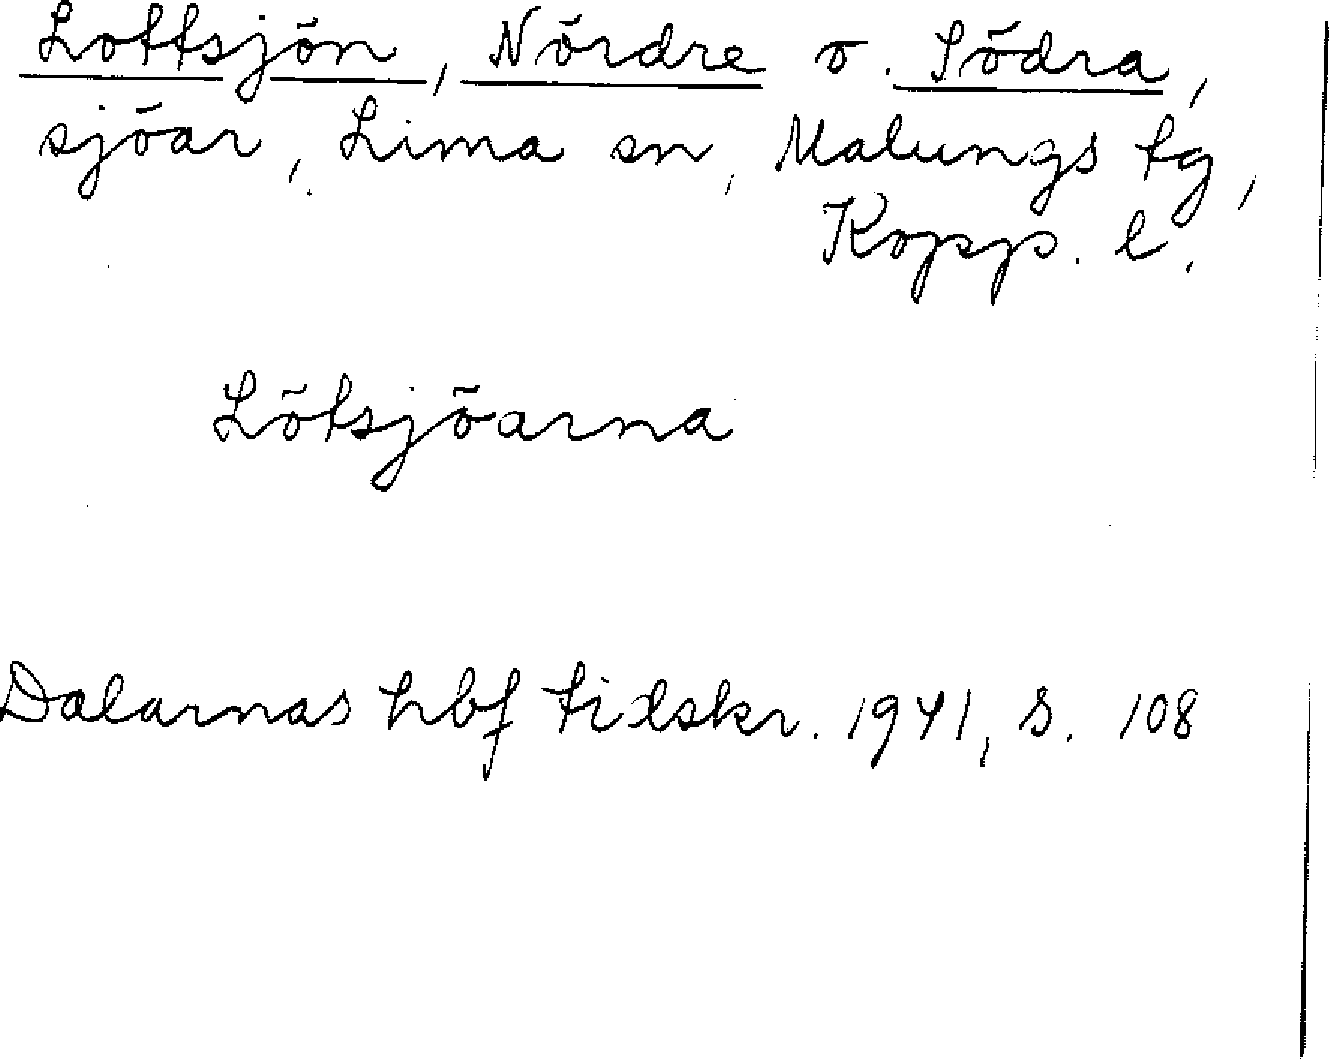 Lottsjön, Nördre o. Södra,
sjöar, Lima sn, Malungs tg,
Kopp. l.
Lötsjöarna
Dalarnas hbf tidskr. 1941, s. 108